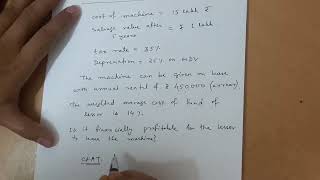 cost of machine = 15 lakh ₹
Salvage value after = ₹ 1 lakh
5 years
tax rate = 35%
Depreciation = 25% on WDV
The machine can be given on lease
with annual rental of ₹ 450000 (arrears).
The weighted average cost of fund of
lessor is 14%
Is it financially profitable for the lessor
to lease the machine?
CFAT